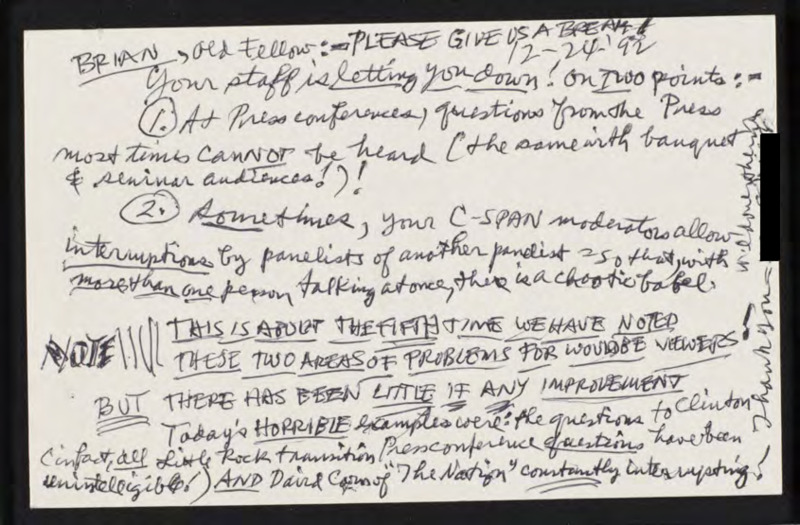 BRIAN, Old Fellow:= PLEASE GIVE US A BREAK!
12-24-'92
Your staff is letting you down! On TWO points:=
1. At Press conferences, questions from the Press
most times CANNOT be heard (the same with banquet
& seminar audiences!)!
2. Sometimes, your C-SPAN moderators allow
interruptions by panelists of another panelist = so that, with
more than one person talking at once, there is a chaotic babel.
NOTE THIS IS ABOUT THE FIFTH TIME WE HAVE NOTED
THESE TWO AREAS OF PROBLEMS FOR WOULDBE VIEWERS
BUT THERE HAS BEEN LITTLE IF ANY IMPROVEMENT
Today's HORRIBLE examples were: the questions to Clinton
(infact, all Little Rock transition Press conference questions have been
unintelligible!) AND David Corn of "The Nation" constantly interrupting!
Thank you =